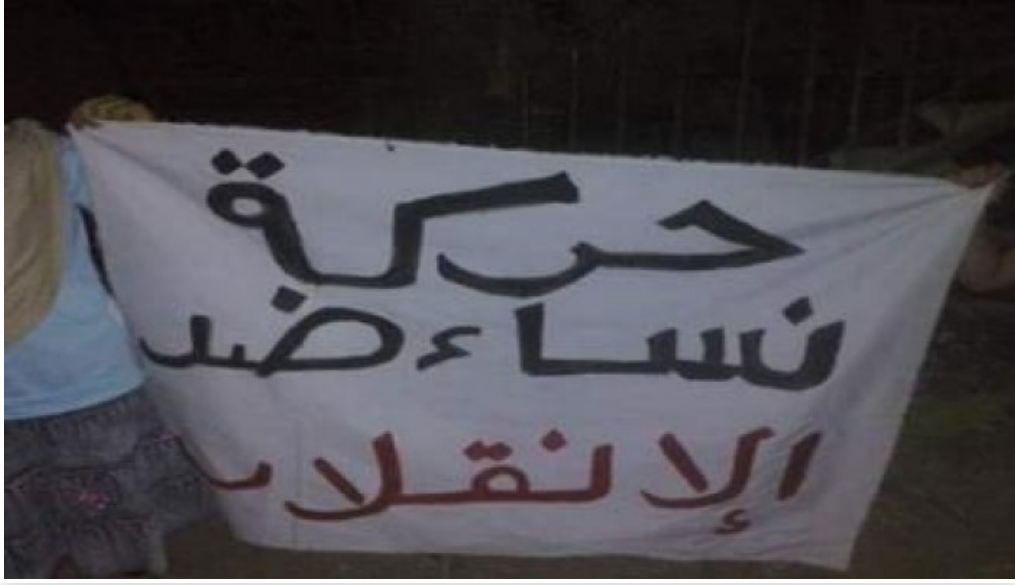 حركة
نساء ضد
الإنقلاب